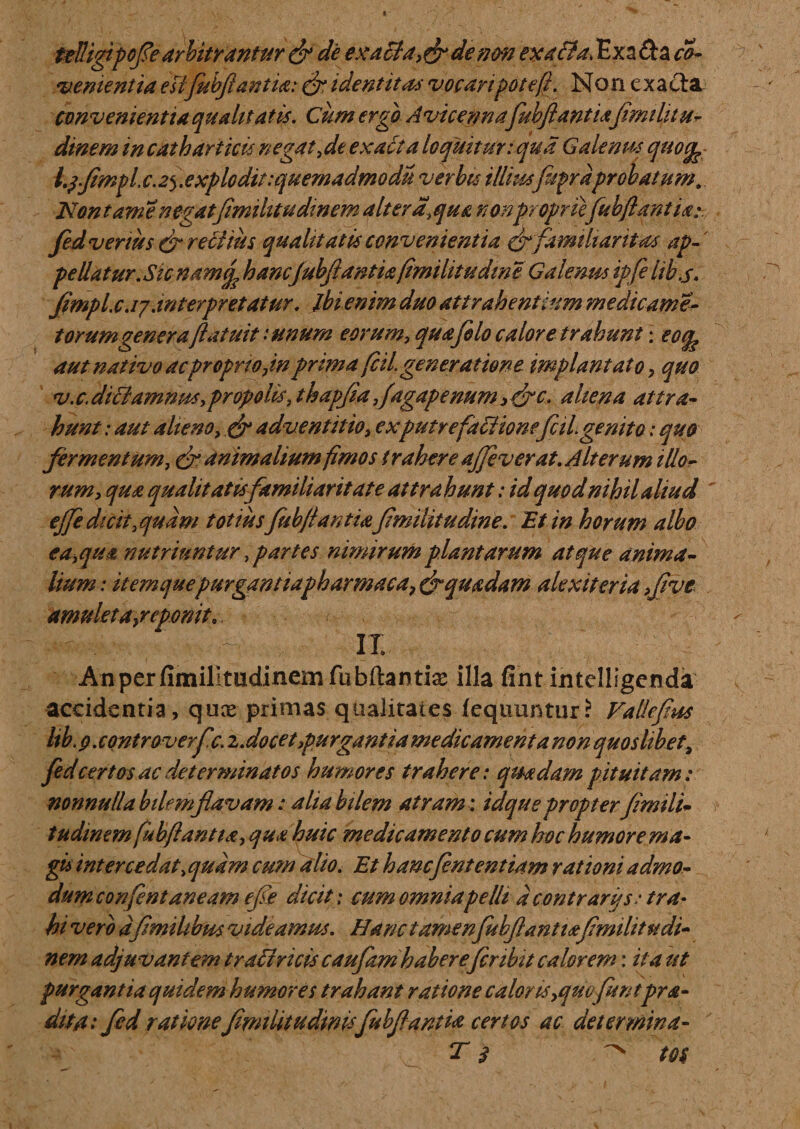 telligi poſſe arbitrantur & de exacta, & de non exacta. Exacta cō-
venientia eſt ſubſtantiæ: & identitas vocari poteſt. Non exacta
convenientia qualitatis. Cùm ergò Avicenna ſubſtantiæ ſimilitu-
dinem in catharticis negat, de exacta loquitur: quā Galenus quoq;
l.3. ſimpl. c. 25. explodit: quemadmodū verbis illius ſuprà probatum.
Non tamē negat ſimilitudinem alterā, quæ non propriè ſubſtantiæ:
ſed veriùs & rectiùs qualitatis convenientia & familiaritas ap-
pellatur. Sic namq; hanc ſubſtantiæ ſimilitudinē Galenus ipſe lib. 5.
ſimpl. c. 17. interpretatur. Ibi enim duo attrahentium medicamē-
torum genera ſtatuit: unum eorum, quæ ſolo calore trahunt: eoq;
aut nativo ac proprio, in prima ſcil. generatione implantato, quo
v.c. dictamnus, propolis, thapſia, ſagapenum, &c. aliena attra-
hunt: aut alieno, & adventitio, ex putrefactione ſcil. genito: quo
fermentum, & animalium fimos trahere aſſeverat. Alterum illo-
rum, quæ qualitatis familiaritate attrahunt: id quod nihil aliud
eſſe dicit, quàm totius ſubſtantiæ ſimilitudine. Et in horum albo
ea, quæ nutriuntur, partes nimirum plantarum atque anima-
lium: itemque purgantia pharmaca, & quædam alexiteria, ſive
amuleta, reponit.
II.
An per ſimilitudinem ſubſtantiæ illa ſint intelligenda
accidentia, quæ primas qualitates ſequuntur? Valleſius
lib. 9. controverſ. c. 2. docet, purgantia medicamenta non quoslibet,
ſed certos ac determinatos humores trahere: quædam pituitam:
nonnulla bilem flavam: alia bilem atram: idque propter ſimili-
tudinem ſubſtantiæ, quæ huic medicamento cum hoc humore ma-
gis intercedat, quàm cum alio. Et hanc ſententiam rationi admo-
dum conſentaneam eſſe dicit: cum omnia pelli à contrarijs: tra-
hi verò à ſimilibus videamus. Hanc tamen ſubſtantiæ ſimilitudi-
nem adjuvantem tractricis cauſam habere ſcribit calorem: ita ut
purgantia quidem humores trahant ratione caloris, quo ſunt præ-
dita: ſed ratione ſimilitudinis ſubſtantiæ certos ac determina-
T 3 tos